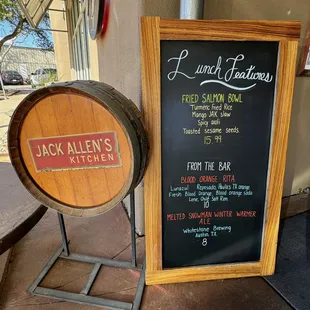 JACK ALLEN'S
KITCHEN
Lunch Features
FRIED SALMON BOWL
Turmeric Fried Rice
Mango JAK slaw
Spicy aioli
Toasted sesame seeds
15.99
FROM THE BAR
BLOOD ORANGE RITA
Lunazul Reposado, Paula's TX orange
Fresh Blood Orange, Blood orange soda
Lime, Over Salt Rim
10
MELTED SNOWMAN WINTER WARMER
ALE
Whitestone Brewing
Austin TX
8